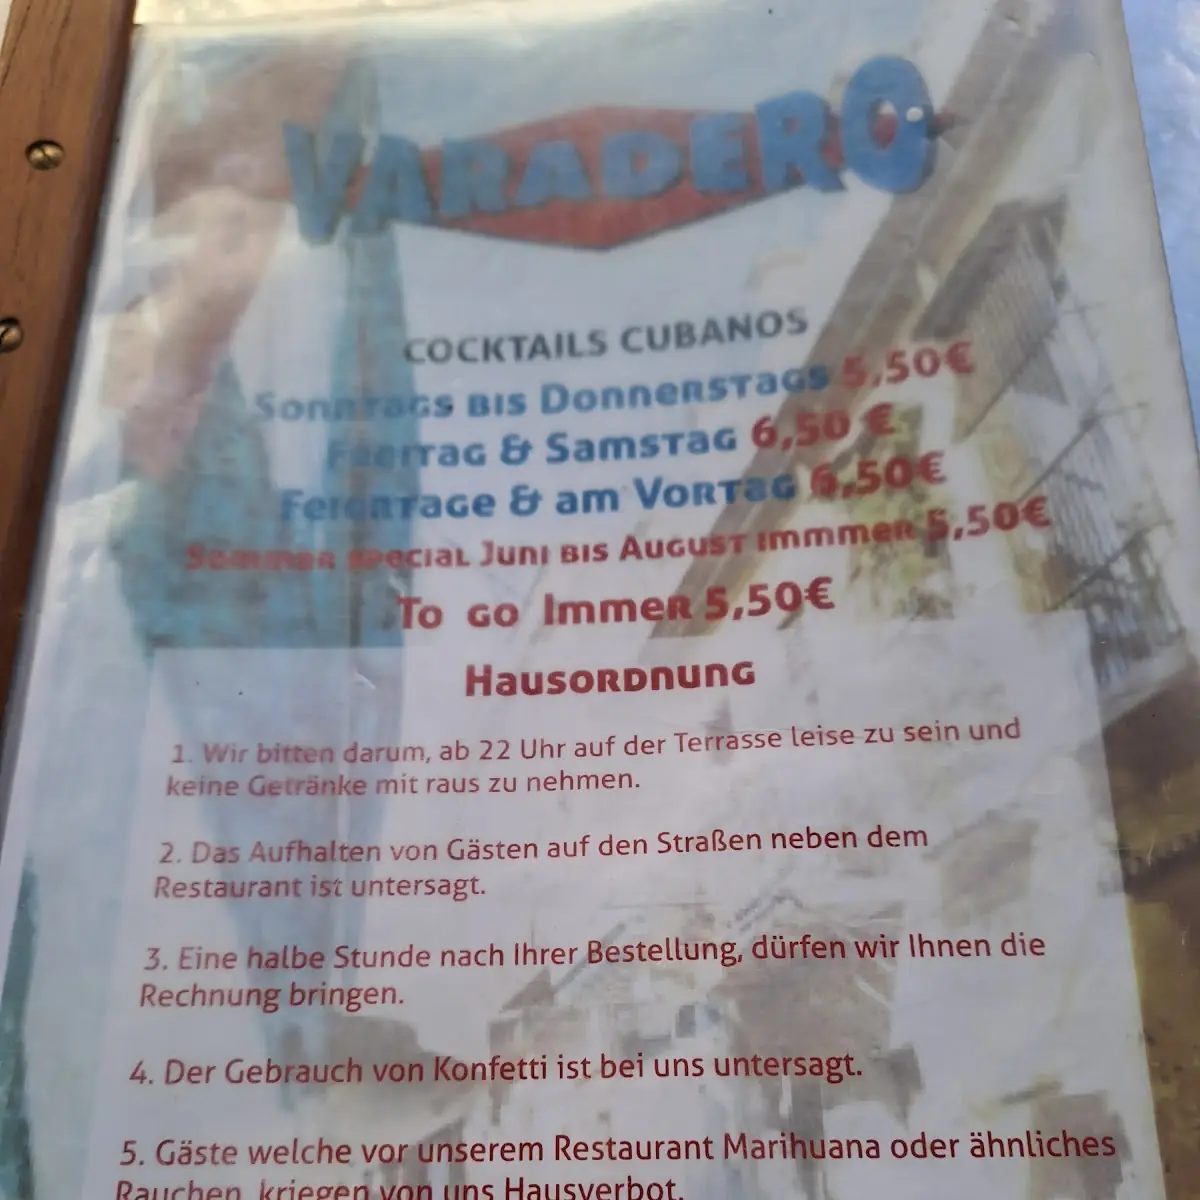 VARADERO
COCKTAILS CUBANOS
Sonntags bis Donnerstags 5,50€
Freitag & Samstag 6,50 €
Feiertage & am Vortag 6,50€
Sommer special Juni bis August immmer 5,50€
To go Immer 5,50€
Hausordnung
1. Wir bitten darum, ab 22 Uhr auf der Terrasse leise zu sein und
keine Getränke mit raus zu nehmen.
2. Das Aufhalten von Gästen auf den Straßen neben dem
Restaurant ist untersagt.
3. Eine halbe Stunde nach Ihrer Bestellung, dürfen wir Ihnen die
Rechnung bringen.
4. Der Gebrauch von Konfetti ist bei uns untersagt.
5. Gäste welche vor unserem Restaurant Marihuana oder ähnliches
Rauchen, kriegen von uns Hausverbot.